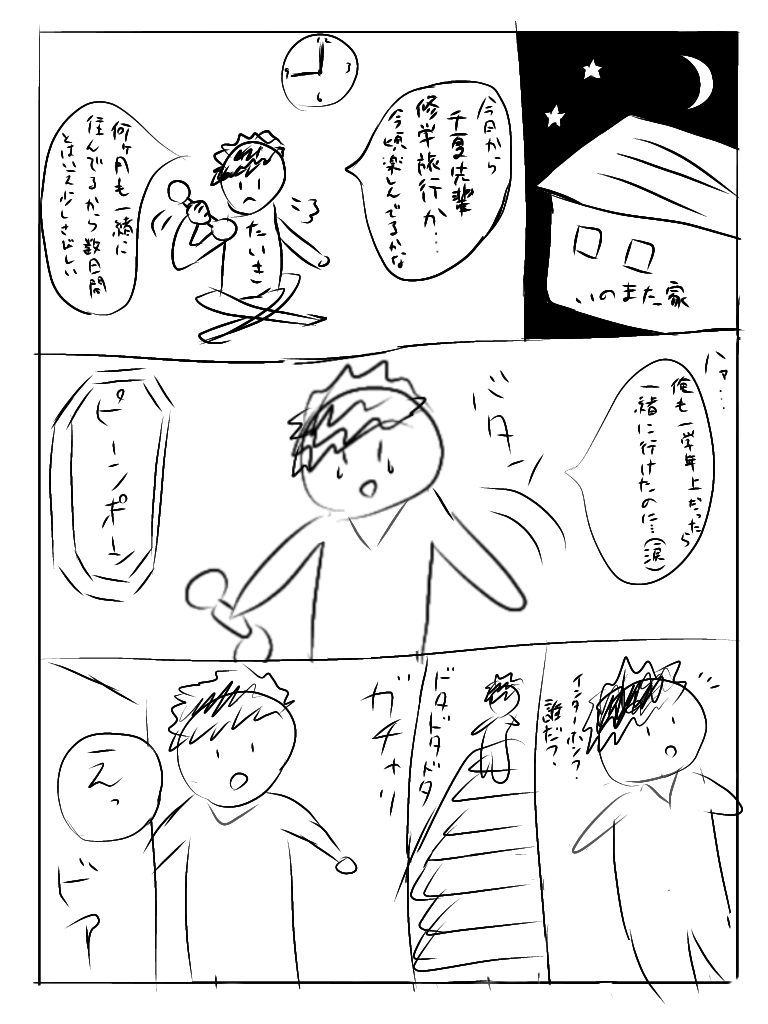 いのまた家
今日から
千夏先輩
修学旅行か…
今頃楽しんでるかな
12
3
6
9
たいき
何ヶ月も一緒に
住んでるから数日間
とはいえ少しさびしい
ハァ…
俺も一学年上だったら
一緒に行けたのに…(涙)
バタン
ピーンポーン
インターホン?
誰だ?
ドタドタドタ
ガチャリ
えっ
ドア